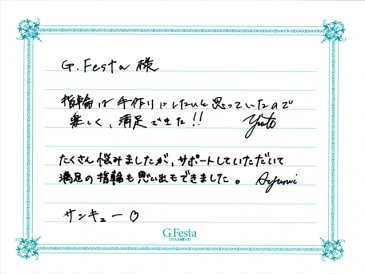 G.Festa 様
指輪は手作りにしたいと思っていたので
楽しく、満足できた!!
Yuto
たくさん悩みましたが、サポートしていただいて
満足の指輪も思い出もできました。 Ayumi
サンキュー
G.Festa
DIAMOND